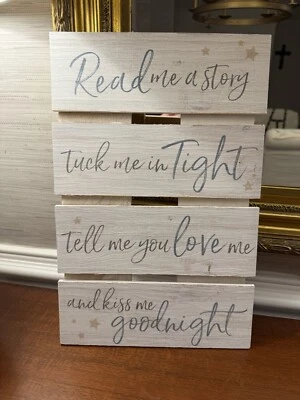 Read me a story
tuck me in Tight
tell me you love me
and kiss me
goodnight